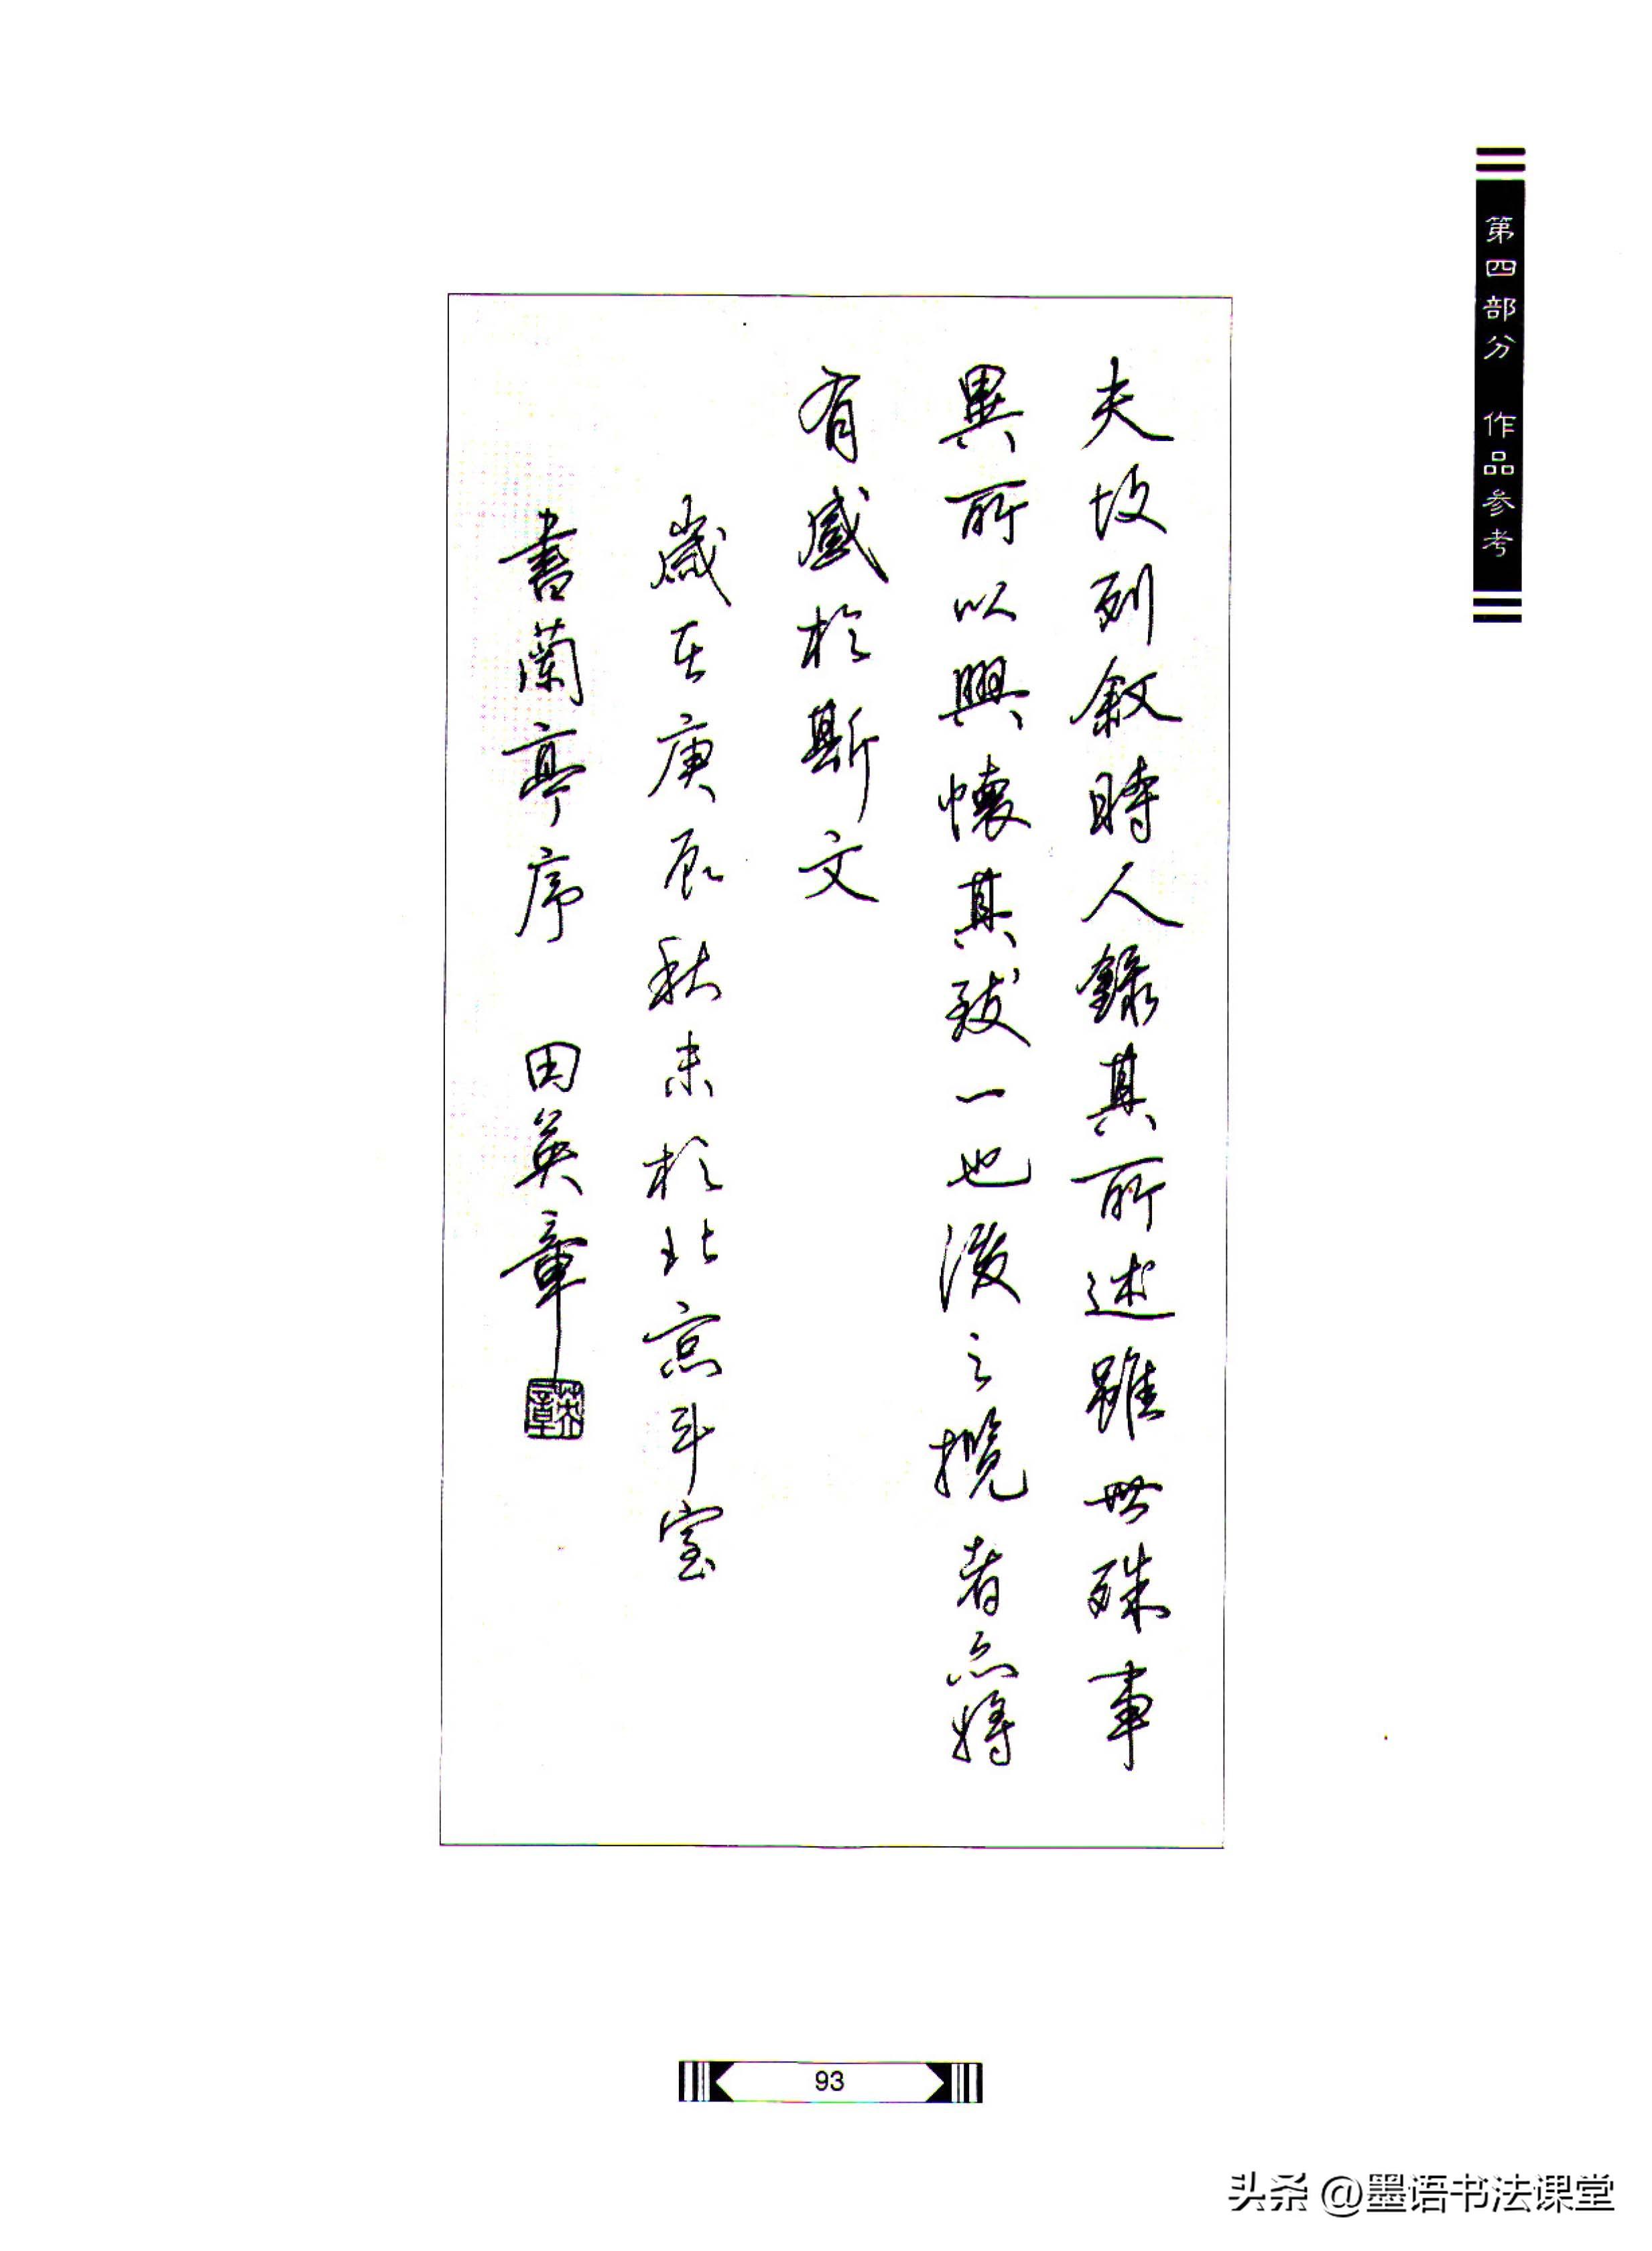 第四部分 作品参考
夫故列敘時人錄其所述雖世殊事
異所以興懷其致一也後之攬者亦將
有感於斯文
歲在庚辰秋末於北京斗室
書蘭亭序 田英章
英章
93
头条 @墨语书法课堂